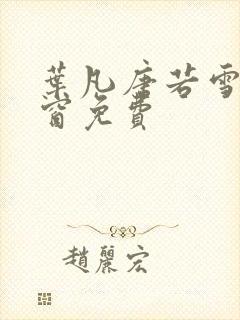 葉凡唐若雪
窗免費
趙麗宏